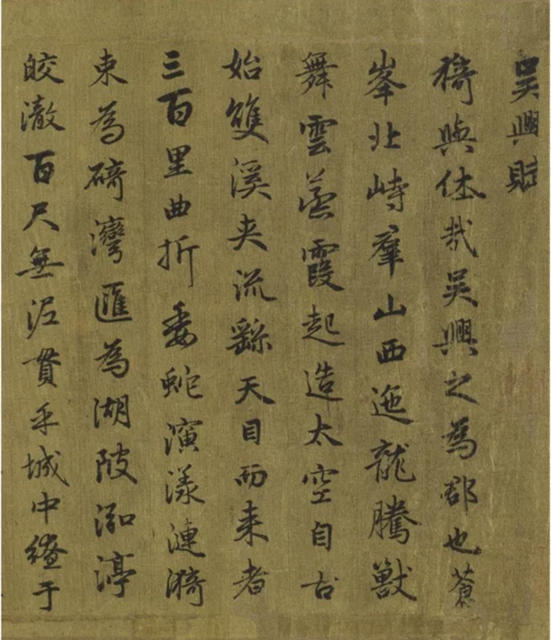 吳興賦
猗與休哉吳興之為郡也蒼
峯北峙羣山西迤龍騰獸
舞雲蒸霞起造太空自古
始雙溪夾流繇天目而來者
三百里曲折委蛇演漾漣漪
束為碕灣匯為湖陂泓渟
皎澈百尺無泥貫乎城中繚于